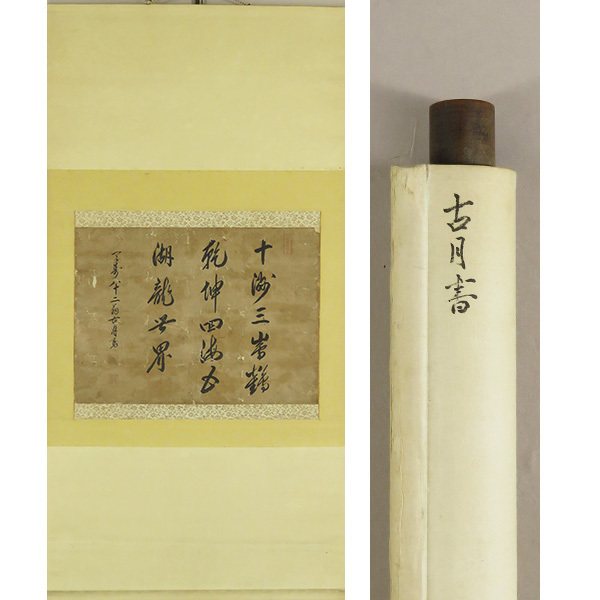 十洲三嶌鶴
乾坤四海五
湖龍世界
八十二翁古月書
古月書